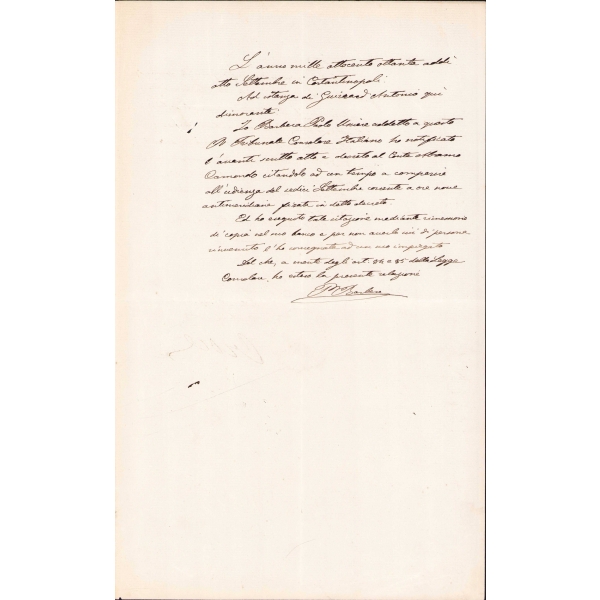 L'anno mille ottocento ottanta addì
otto Settembre in Costantinopoli.
Ad istanza di Guirard Antonio quì
dimorante:
Io Barbera Paolo Usciere addetto a questo
R. Tribunale Consolare Italiano ho notificato
l'avanti scritto atto e decreto al Conte Abramo
Camondo citandolo ad un tempo a comparire
all'udienza del sedici Settembre corrente a ore nove
antimeridiane fissata in detto decreto.
Ed ho eseguito tale citazione mediante rimessione
di copia nel suo banco e per non averlo ivi di persona
rinvenuto l'ho consegnata ad un suo impiegato
Del che, a mente degli art. 84 e 85 della Legge
Consolare, ho esteso la presente relazione
P. Barbera